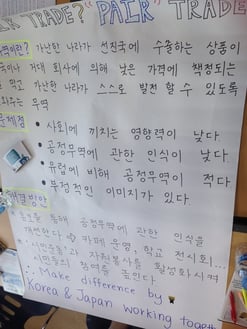 TRADE? "PAIR" TRADE
이란? 가난한 나라가 선진국에 수출하는 상품이
거대 회사에 의해 낮은 가격에 책정되는
먹고 가난한 나라가 스스로 발전 할 수 있도록
무역
문제점
• 사회에 끼치는 영향력이 낮다.
• 공정무역에 관한 인식이 낮다.
• 유럽에 비해 공정무역이 적다.
• 부정적인 이미지가 있다
해결 방안
통해 공정무역에 관한 인식을
개선한다 → 카페 운영, 학교 전시회...
자원봉사를 활성화시켜
시민들의 참여를 높인다.
∴ Make difference by
Korea & Japan working together